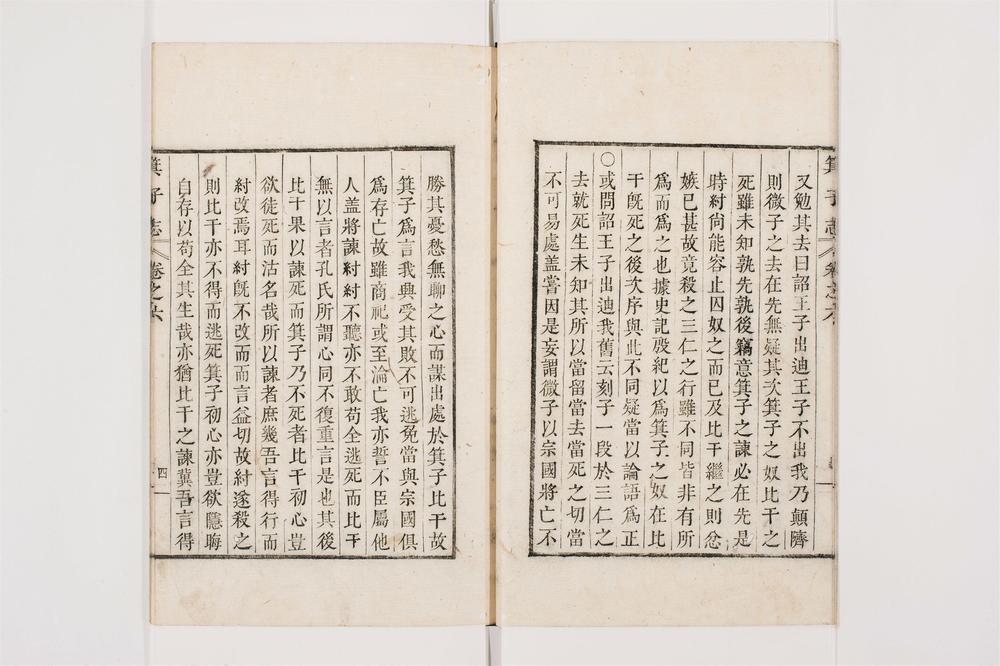 箕子志 卷之六
又勉其去曰詔王子出迪王子不出我乃顚隮
則微子之去在先無疑其次箕子之奴比干之
死雖未知孰先孰後竊意箕子之諫必在先是
時紂尙能容止囚奴之而已及比干繼之則忿
嫉已甚故竟殺之三仁之行雖不同皆非有所
爲而爲之也據史記殷紀以爲箕子之奴在比
干旣死之後次序與此不同疑當以論語爲正
○或問詔王子出迪我舊云刻子一段於三仁之
去就死生未知其所以當留當去當死之切當
不可易處盖嘗因是妄謂微子以宗國將亡不
勝其憂愁無聊之心而謀出處於箕子比干故
箕子爲言我興受其敗不可逃免當與宗國俱
爲存亡故雖商祀或至淪亡我亦誓不臣屬他
人盖將諫紂紂不聽亦不敢苟全逃死而比干
無以言者孔氏所謂心同不復重言是也其後
比干果以諫死而箕子乃不死者比干初心豈
欲徒死而沽名哉所以諫者庶幾吾言得行而
紂改焉耳紂旣不改而而言益切故紂遂殺之
則比干亦不得而逃死箕子初心亦豈欲隱晦
自存以苟全其生哉亦猶比干之諫冀吾言得
箕子志 卷之六 四